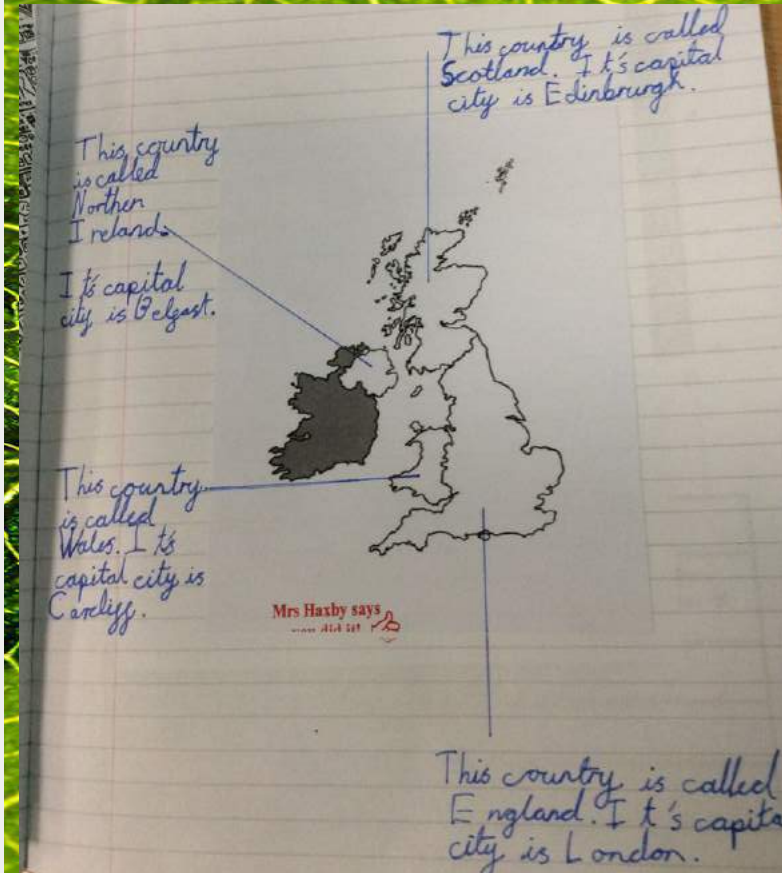 This country is called
Scotland. It's capital
city is Edinbrurgh.
This country
is called
Northen
Ireland.
It's capital
city is Belgast.
This country
is called
Wales. It's
capital city is
Cardigg.
Mrs Haxby says
you did it!
This country is called
England. It's capita
city is London.